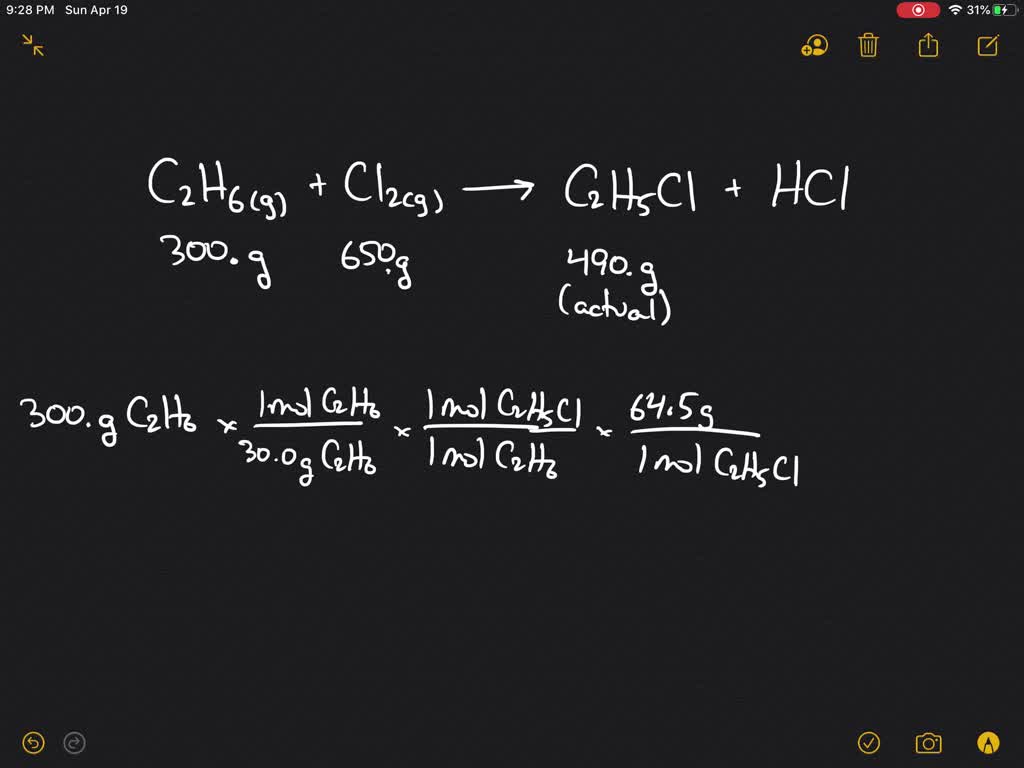 9:28 PM Sun Apr 19
31%
C₂H₆(g) + Cl₂(g) → C₂H₅Cl + HCl
300. g 650. g 490. g
(actual)
300. g C₂H₆ × 1 mol C₂H₆ / 30.0 g C₂H₆ × 1 mol C₂H₅Cl / 1 mol C₂H₆ × 64.5 g / 1 mol C₂H₅Cl